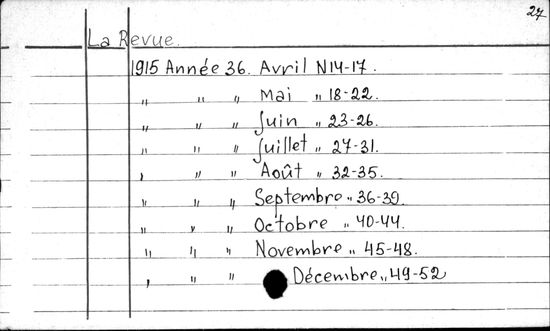 27
La Revue.
1915 Année 36. Avril N14-17.
„ „ „ Mai „ 18-22.
„ „ „ Juin „ 23-26.
„ „ „ Juillet „ 27-31.
„ „ „ Août „ 32-35.
„ „ „ Septembre „ 36-39.
„ „ „ Octobre „ 40-44.
„ „ „ Novembre „ 45-48.
„ „ „ Décembre „ 49-52